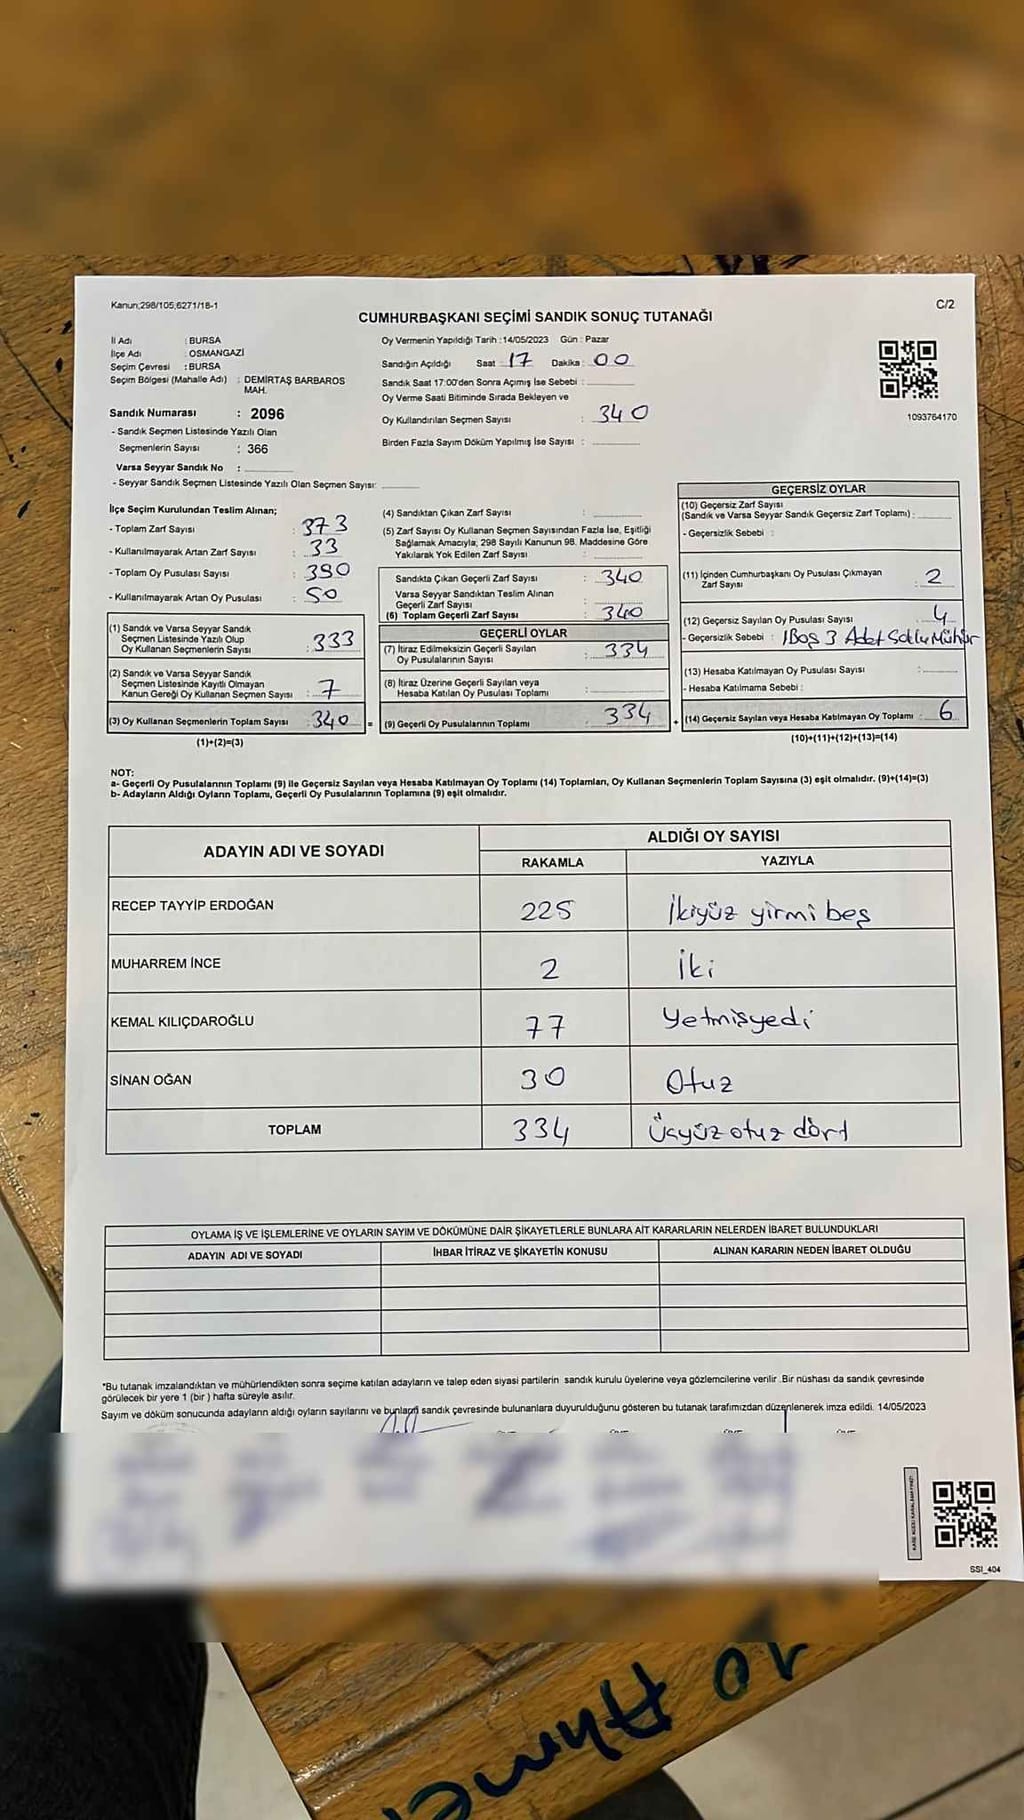 Kanun;298/105;6271/18-1
C/2
CUMHURBAŞKANI SEÇİMİ SANDIK SONUÇ TUTANAĞI
İl Adı : BURSA
İlçe Adı : OSMANGAZİ
Seçim Çevresi : BURSA
Seçim Bölgesi (Mahalle Adı) : DEMİRTAŞ BARBAROS
MAH.
Sandık Numarası : 2096
- Sandık Seçmen Listesinde Yazılı Olan
Seçmenlerin Sayısı : 366
Varsa Seyyar Sandık No :
- Seyyar Sandık Seçmen Listesinde Yazılı Olan Seçmen Sayısı:
Oy Vermenin Yapıldığı Tarih :14/05/2023 Gün : Pazar
Sandığın Açıldığı Saat 17 Dakika : 00
Sandık Saat 17:00'den Sonra Açımış İse Sebebi :
Oy Verme Saati Bitiminde Sırada Bekleyen ve
Oy Kullandırılan Seçmen Sayısı : 340
Birden Fazla Sayım Döküm Yapılmış İse Sayısı :
1093764170
İlçe Seçim Kurulundan Teslim Alınan;
- Toplam Zarf Sayısı : 373
- Kullanılmayarak Artan Zarf Sayısı : 33
- Toplam Oy Pusulası Sayısı : 390
- Kullanılmayarak Artan Oy Pusulası : 50
(1) Sandık ve Varsa Seyyar Sandık
Seçmen Listesinde Yazılı Olup
Oy Kullanan Seçmenlerin Sayısı : 333
(2) Sandık ve Varsa Seyyar Sandık
Seçmen Listesinde Kayıtlı Olmayan
Kanun Gereği Oy Kullanan Seçmen Sayısı : 7
(3) Oy Kullanan Seçmenlerin Toplam Sayısı : 340 =
(1)+(2)=(3)
(4) Sandıktan Çıkan Zarf Sayısı :
(5) Zarf Sayısı Oy Kullanan Seçmen Sayısından Fazla İse, Eşitliği
Sağlamak Amacıyla; 298 Sayılı Kanunun 98. Maddesine Göre
Yakılarak Yok Edilen Zarf Sayısı :
Sandıkta Çıkan Geçerli Zarf Sayısı : 340
Varsa Seyyar Sandıktan Teslim Alınan
Geçerli Zarf Sayısı :
(6) Toplam Geçerli Zarf Sayısı : 340
GEÇERLİ OYLAR
(7) İtiraz Edilmeksizin Geçerli Sayılan
Oy Pusulalarının Sayısı : 334
(8) İtiraz Üzerine Geçerli Sayılan veya
Hesaba Katılan Oy Pusulası Toplamı :
(9) Geçerli Oy Pusulalarının Toplamı : 334 +
GEÇERSİZ OYLAR
(10) Geçersiz Zarf Sayısı
(Sandık ve Varsa Seyyar Sandık Geçersiz Zarf Toplamı) :
- Geçersizlik Sebebi :
(11) İçinden Cumhurbaşkanı Oy Pusulası Çıkmayan
Zarf Sayısı : 2
(12) Geçersiz Sayılan Oy Pusulası Sayısı : 4
- Geçersizlik Sebebi : 1Boş 3 Adet Soklu Mühür
(13) Hesaba Katılmayan Oy Pusulası Sayısı :
- Hesaba Katılmama Sebebi :
(14) Geçersiz Sayılan veya Hesaba Katılmayan Oy Toplamı : 6
(10)+(11)+(12)+(13)=(14)
NOT:
a- Geçerli Oy Pusulalarının Toplamı (9) ile Geçersiz Sayılan veya Hesaba Katılmayan Oy Toplamı (14) Toplamları, Oy Kullanan Seçmenlerin Toplam Sayısına (3) eşit olmalıdır. (9)+(14)=(3)
b- Adayların Aldığı Oyların Toplamı, Geçerli Oy Pusulalarının Toplamına (9) eşit olmalıdır.
ADAYIN ADI VE SOYADI
ALDIĞI OY SAYISI
RAKAMLA YAZIYLA
RECEP TAYYİP ERDOĞAN 225 İkiyüz yirmi beş
MUHARREM İNCE 2 İki
KEMAL KILIÇDAROĞLU 77 Yetmişyedi
SİNAN OĞAN 30 Otuz
TOPLAM 334 Üçyüz otuz dört
OYLAMA İŞ VE İŞLEMLERİNE VE OYLARIN SAYIM VE DÖKÜMÜNE DAİR ŞİKAYETLERLE BUNLARA AİT KARARLARIN NELERDEN İBARET BULUNDUKLARI
ADAYIN ADI VE SOYADI İHBAR İTİRAZ VE ŞİKAYETİN KONUSU ALINAN KARARIN NEDEN İBARET OLDUĞU
*Bu tutanak imzalandıktan ve mühürlendikten sonra seçime katılan adayların ve talep eden siyasi partilerin sandık kurulu üyelerine veya gözlemcilerine verilir .Bir nüshası da sandık çevresinde
görülecek bir yere 1 (bir ) hafta süreyle asılır.
Sayım ve döküm sonucunda adayların aldığı oyların sayılarını ve bunların sandık çevresinde bulunanlara duyurulduğunu gösteren bu tutanak tarafımızdan düzenlenerek imza edildi. 14/05/2023
SSI_404